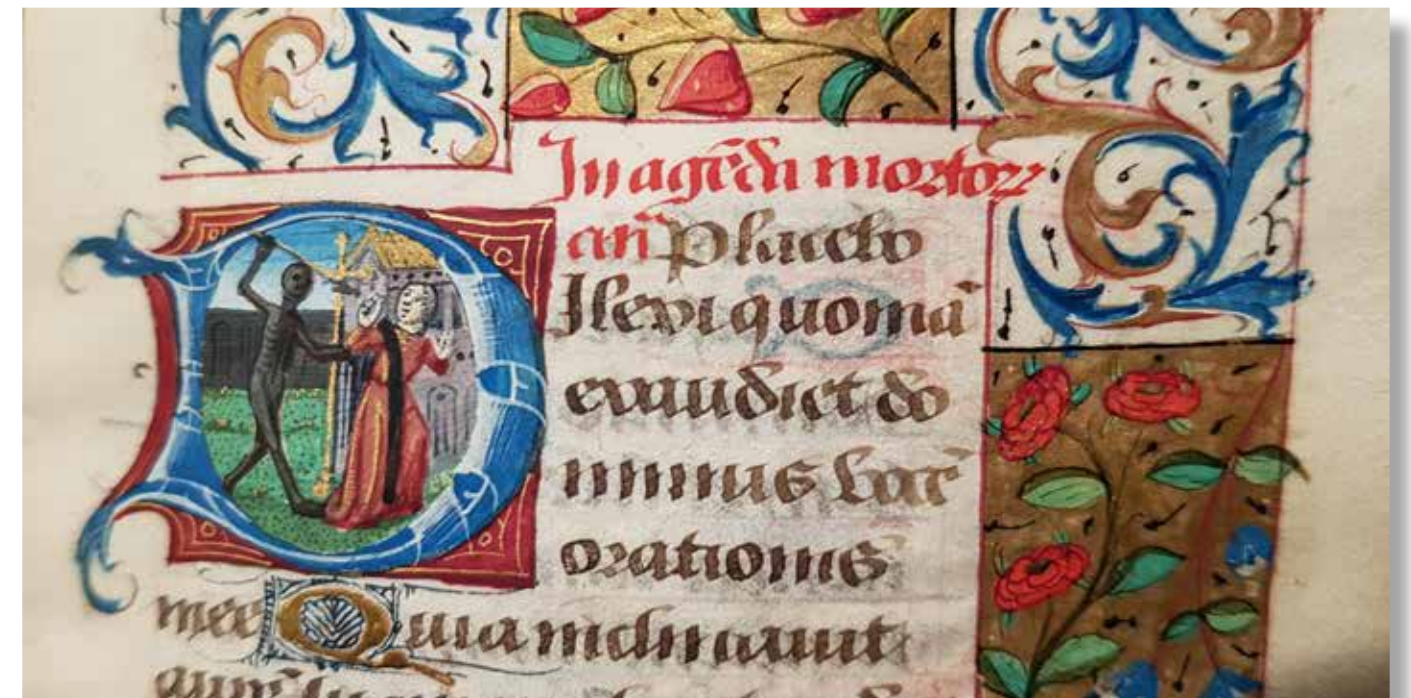 In agēda mortoꝝ
añ Placebo
DIlexi quoniā
exaudiet do
minus vocē
orationis
mee Quia inclinauit